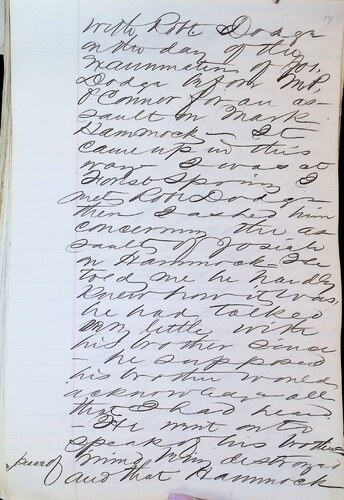 with Robt Dodge
on the day of the
Examination of Jos.
Dodge before Mr P.
O'Conner for an as-
sault on Mark
Hammock — It
came up in this
way — I was at
Forest Spring I
met Robt Dodge
then I asked him
concerning the as
sault of Josiah
on Hammock — He
told me he hardly
knew how it was,
he had talked
very little with
his brother since
— he supposed
his brother would
acknowledge all
that I had heard
— He went on to
speak of his brothers
being destroyed
and that Hammock